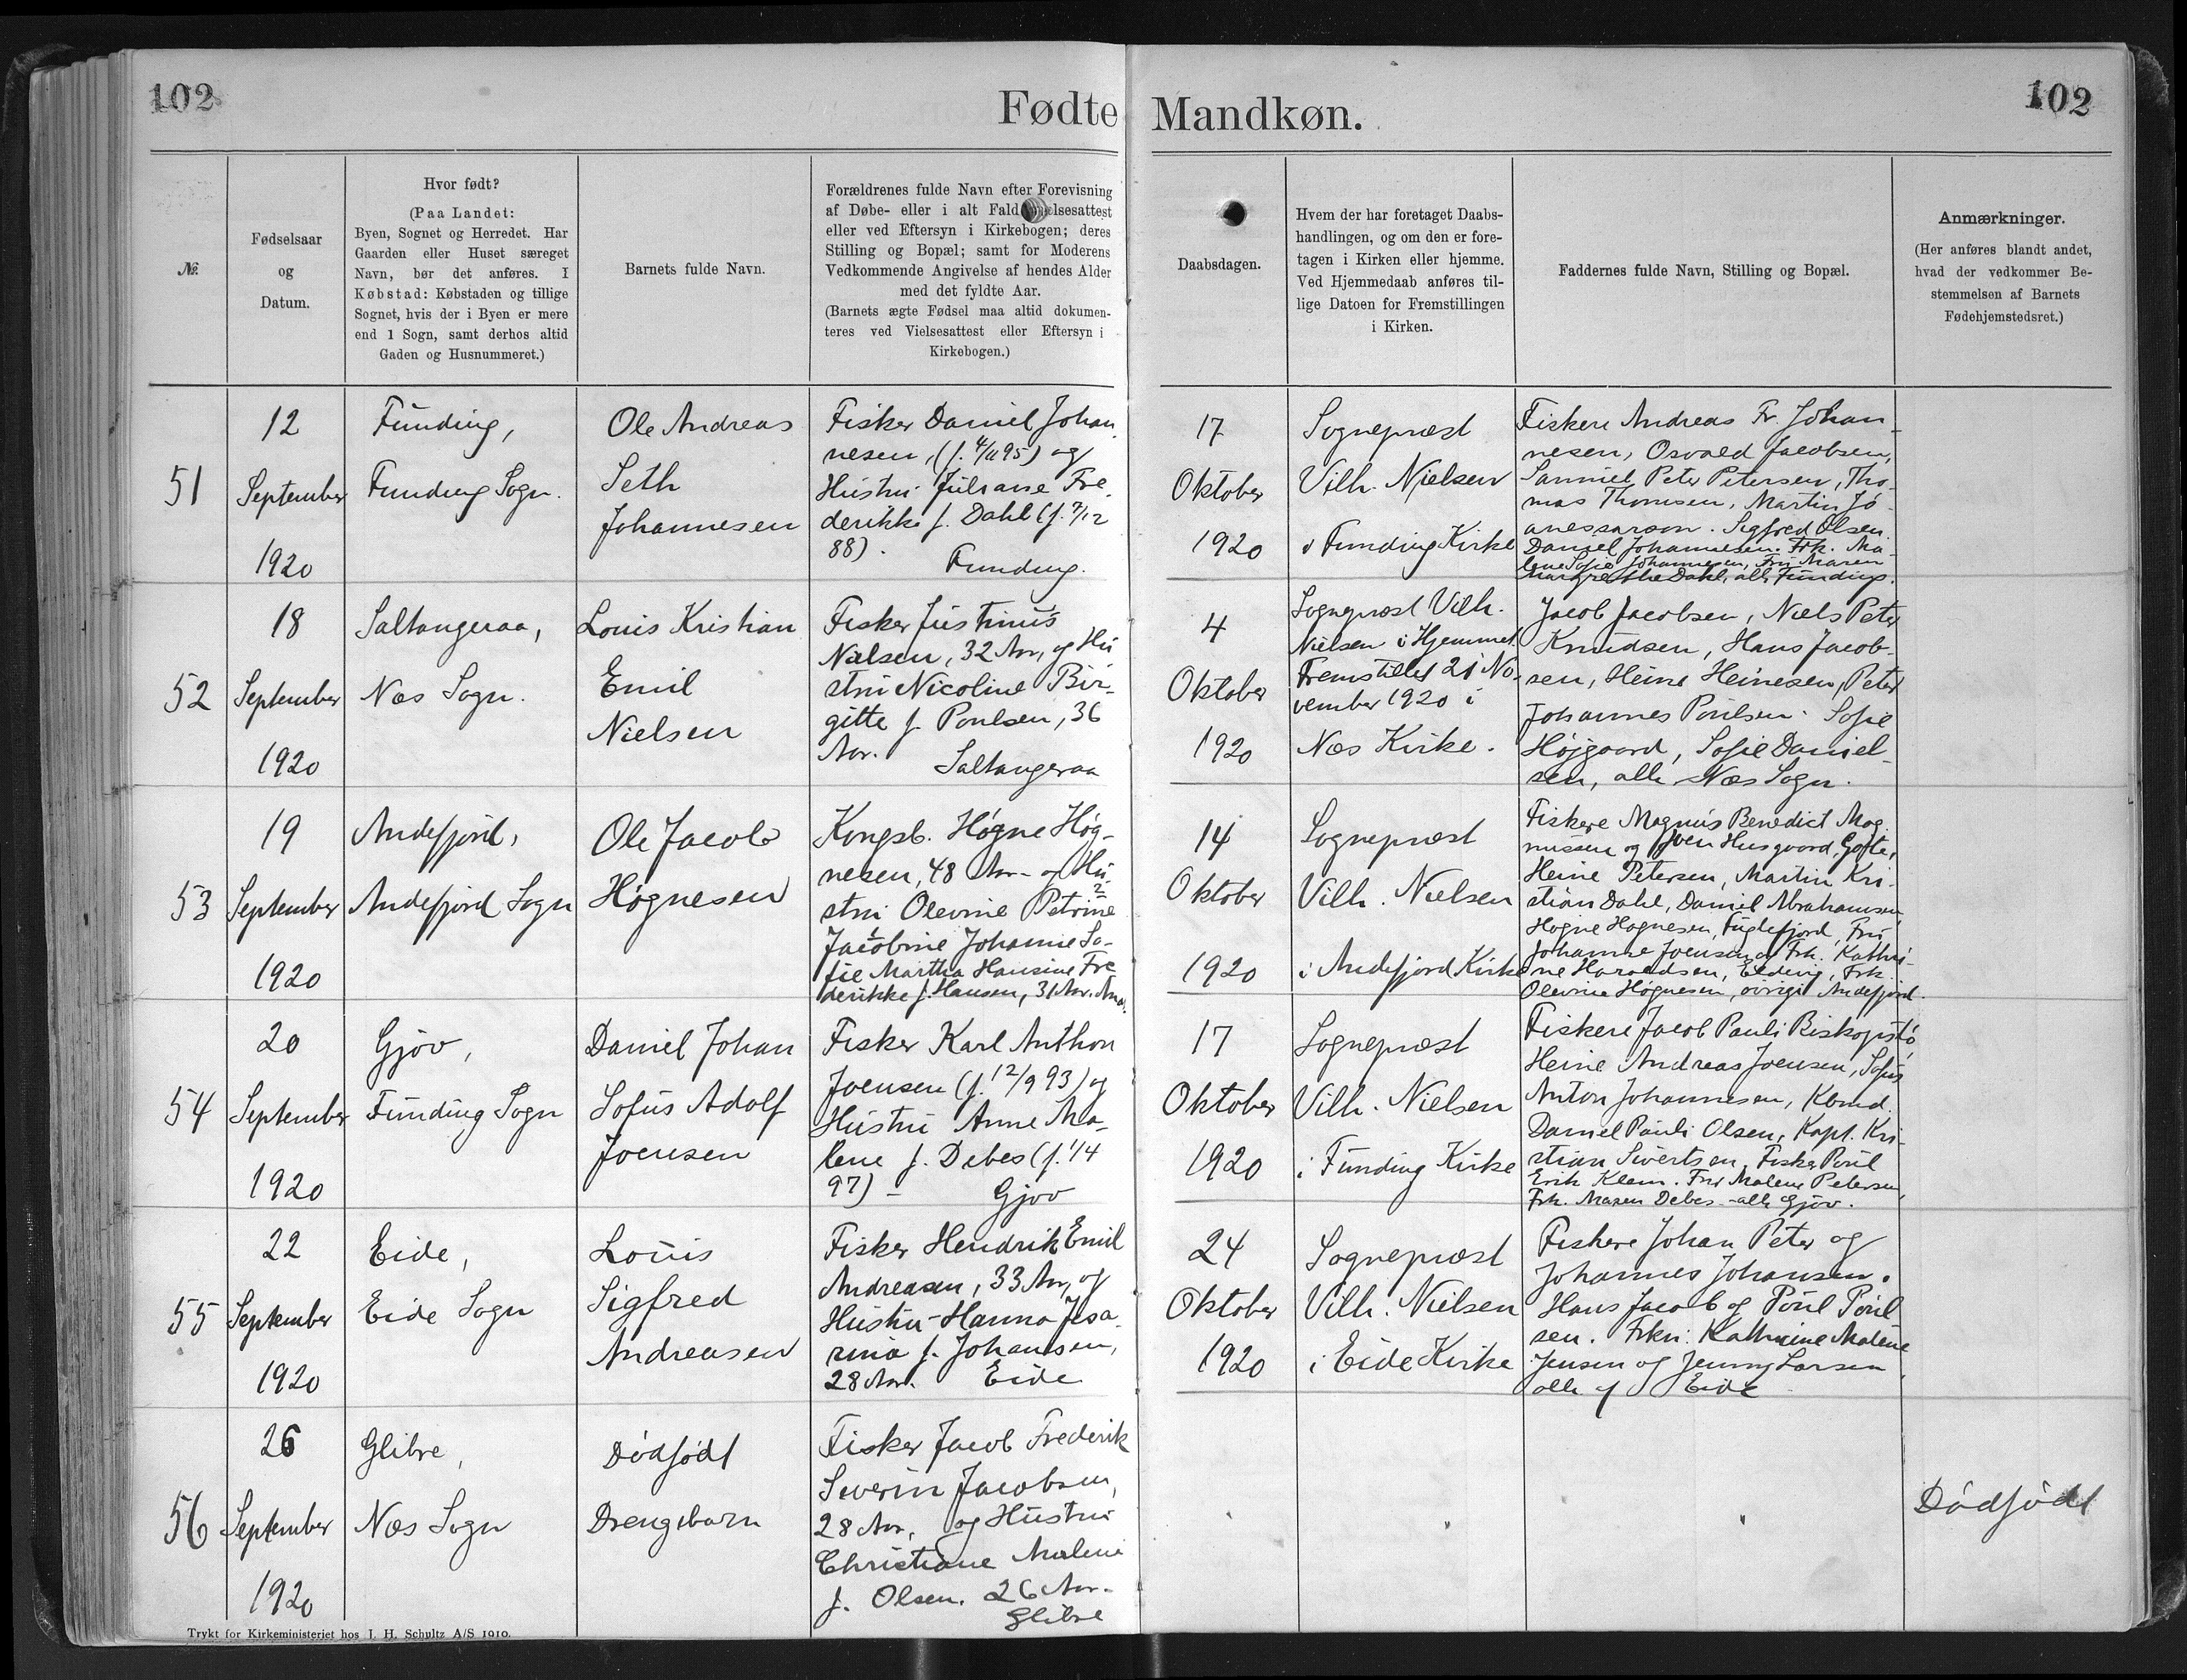 102
Fødte
Mandkøn.
102
№.
Fødselsaar
og
Datum.
Hvor født?
(Paa Landet:
Byen, Sognet og Herredet. Har
Gaarden eller Huset særeget
Navn, bør det anføres. I
Købstad: Købstaden og tillige
Sognet, hvis der i Byen er mere
end 1 Sogn, samt derhos altid
Gaden og Husnummeret.)
Barnets fulde Navn.
Forældrenes fulde Navn efter Forevisning
af Døbe- eller i alt Fald elsesattest
eller ved Eftersyn i Kirkebogen; deres
Stilling og Bopæl; samt for Moderens
Vedkommende Angivelse af hendes Alder
med det fyldte Aar.
(Barnets ægte Fødsel maa altid dokumen-
teres ved Vielsesattest eller Eftersyn i
Kirkebogen.)
Daabsdagen.
Hvem der har foretaget Daabs-
handlingen, og om den er fore-
tagen i Kirken eller hjemme.
Ved Hjemmedaab anføres til-
lige Datoen for Fremstillingen
i Kirken.
Faddernes fulde Navn, Stilling og Bopæl.
Anmærkninger.
(Her anføres blandt andet,
hvad der vedkommer Be-
stemmelsen af Barnets
Fødehjemstedsret.)
51
12
September
1920
Funding,
Funding Sogn.
Ole Andreas
Seth
Johannesen
Fisker Daniel Johan-
nesen, (f. 4/11 95) og
Hustru Juliane Fre-
derikke f. Dahl (f. 7/12
88).
Funding.
17
Oktober
1920
Sognepræst
Vilh. Nielsen
i Funding Kirke
Fiskere Andreas Fr. Johan-
nesen, Osvald Jacobsen,
Samuel Peter Petersen, Tho-
mas Thomsen, Martin Jó-
anessarson. Sigfred Olsen.
Daniel Johannesen. Frk. Ma-
lene Sofie Johannesen, Fru Maren
Margrethe Dahl, alle Funding.
52
18
September
1920
Saltangeraa,
Næs Sogn.
Louis Kristian
Emil
Nielsen
Fisker Justinus
Nielsen, 32 Aar, og Hu-
stru Nicoline Bir-
gitte f. Poulsen, 36
Aar.
Saltangeraa
4
Oktober
1920
Sognepræst Vilh.
Nielsen i Hjemmet.
Fremstillet 21 No-
vember 1920 i
Næs Kirke.
Jacob Jacobsen, Niels Peter
Knudsen, Hans Jacob-
sen, Heine Heinesen, Peter
Johannes Poulsen. Sofie
Højgaard, Sofie Daniel-
sen, alle Næs Sogn.
53
19
September
1920
Andefjord,
Andefjord Sogn
Ole Jacob
Høgnesen
Kongsb. Høgne Høg-
nesen, 48 Aar - og Hu-
stru Olevine Petrine
Jacobine Johanne So-
fie Martha Hansine Fre-
derikke f. Hansen, 31 Aar.
14
Oktober
1920
Sognepræst
Vilh. Nielsen
i Andefjord Kirke
Fiskere Magnus Benedict Mag-
nussen og Joen Husgaard, Gøte,
Heine Petersen, Martin Kri-
stian Dahl, Daniel Abrahamsen,
Høgne Høgnesen, Fuglefjord, Fru
Johanne Joensen og Frk. Kathri-
ne Haraldsen, Eldevig, Frk.
Olevine Høgnesen, øvrige Andefjord.
54
20
September
1920
Gjov,
Funding Sogn
Daniel Johan
Sofus Adolf
Joensen
Fisker Karl Anthon
Joensen (f. 12/9 93) og
Hustru Anne Ma-
lene f. Debes (f. 1/4
97) -
Gjov
17
Oktober
1920
Sognepræst
Vilh. Nielsen
i Funding Kirke
Fiskere Jacob Pauli Biskopstø
Heine Andreas Joensen, Sofus
Anton Johannesen, Kbmd.
Daniel Pauli Olsen, Kapt. Kri-
stian Sivertsen, Fisker Poul
Erik Klein. Fru Malene Petersen,
Frk. Maren Debes - alle Gjov.
55
22
September
1920
Eide,
Eide Sogn
Louis
Sigfred
Andreasen
Fisker Hendrik Emil
Andreasen, 33 Aar, og
Hustru Hanna Jesa-
rina f. Johansen,
28 Aar. Eide
24
Oktober
1920
Sognepræst
Vilh. Nielsen
i Eide Kirke
Fiskere Johan Peter og
Johannes Johansen.
Hans Jacob og Poul Poul-
sen. Frkn. Kathrine Malene
Jensen og Jenny Larsen
alle af Eide
56
26
September
1920
Glibre,
Næs Sogn
Dødfødt
Drengebarn
Fisker Jacob Frederik
Severin Jacobsen,
28 Aar, og Hustru
Christiane Malene
f. Olsen. 26 Aar.
Glibre
Dødfødt
Trykt for Kirkeministeriet hos J. H. Schultz A/S 1919.